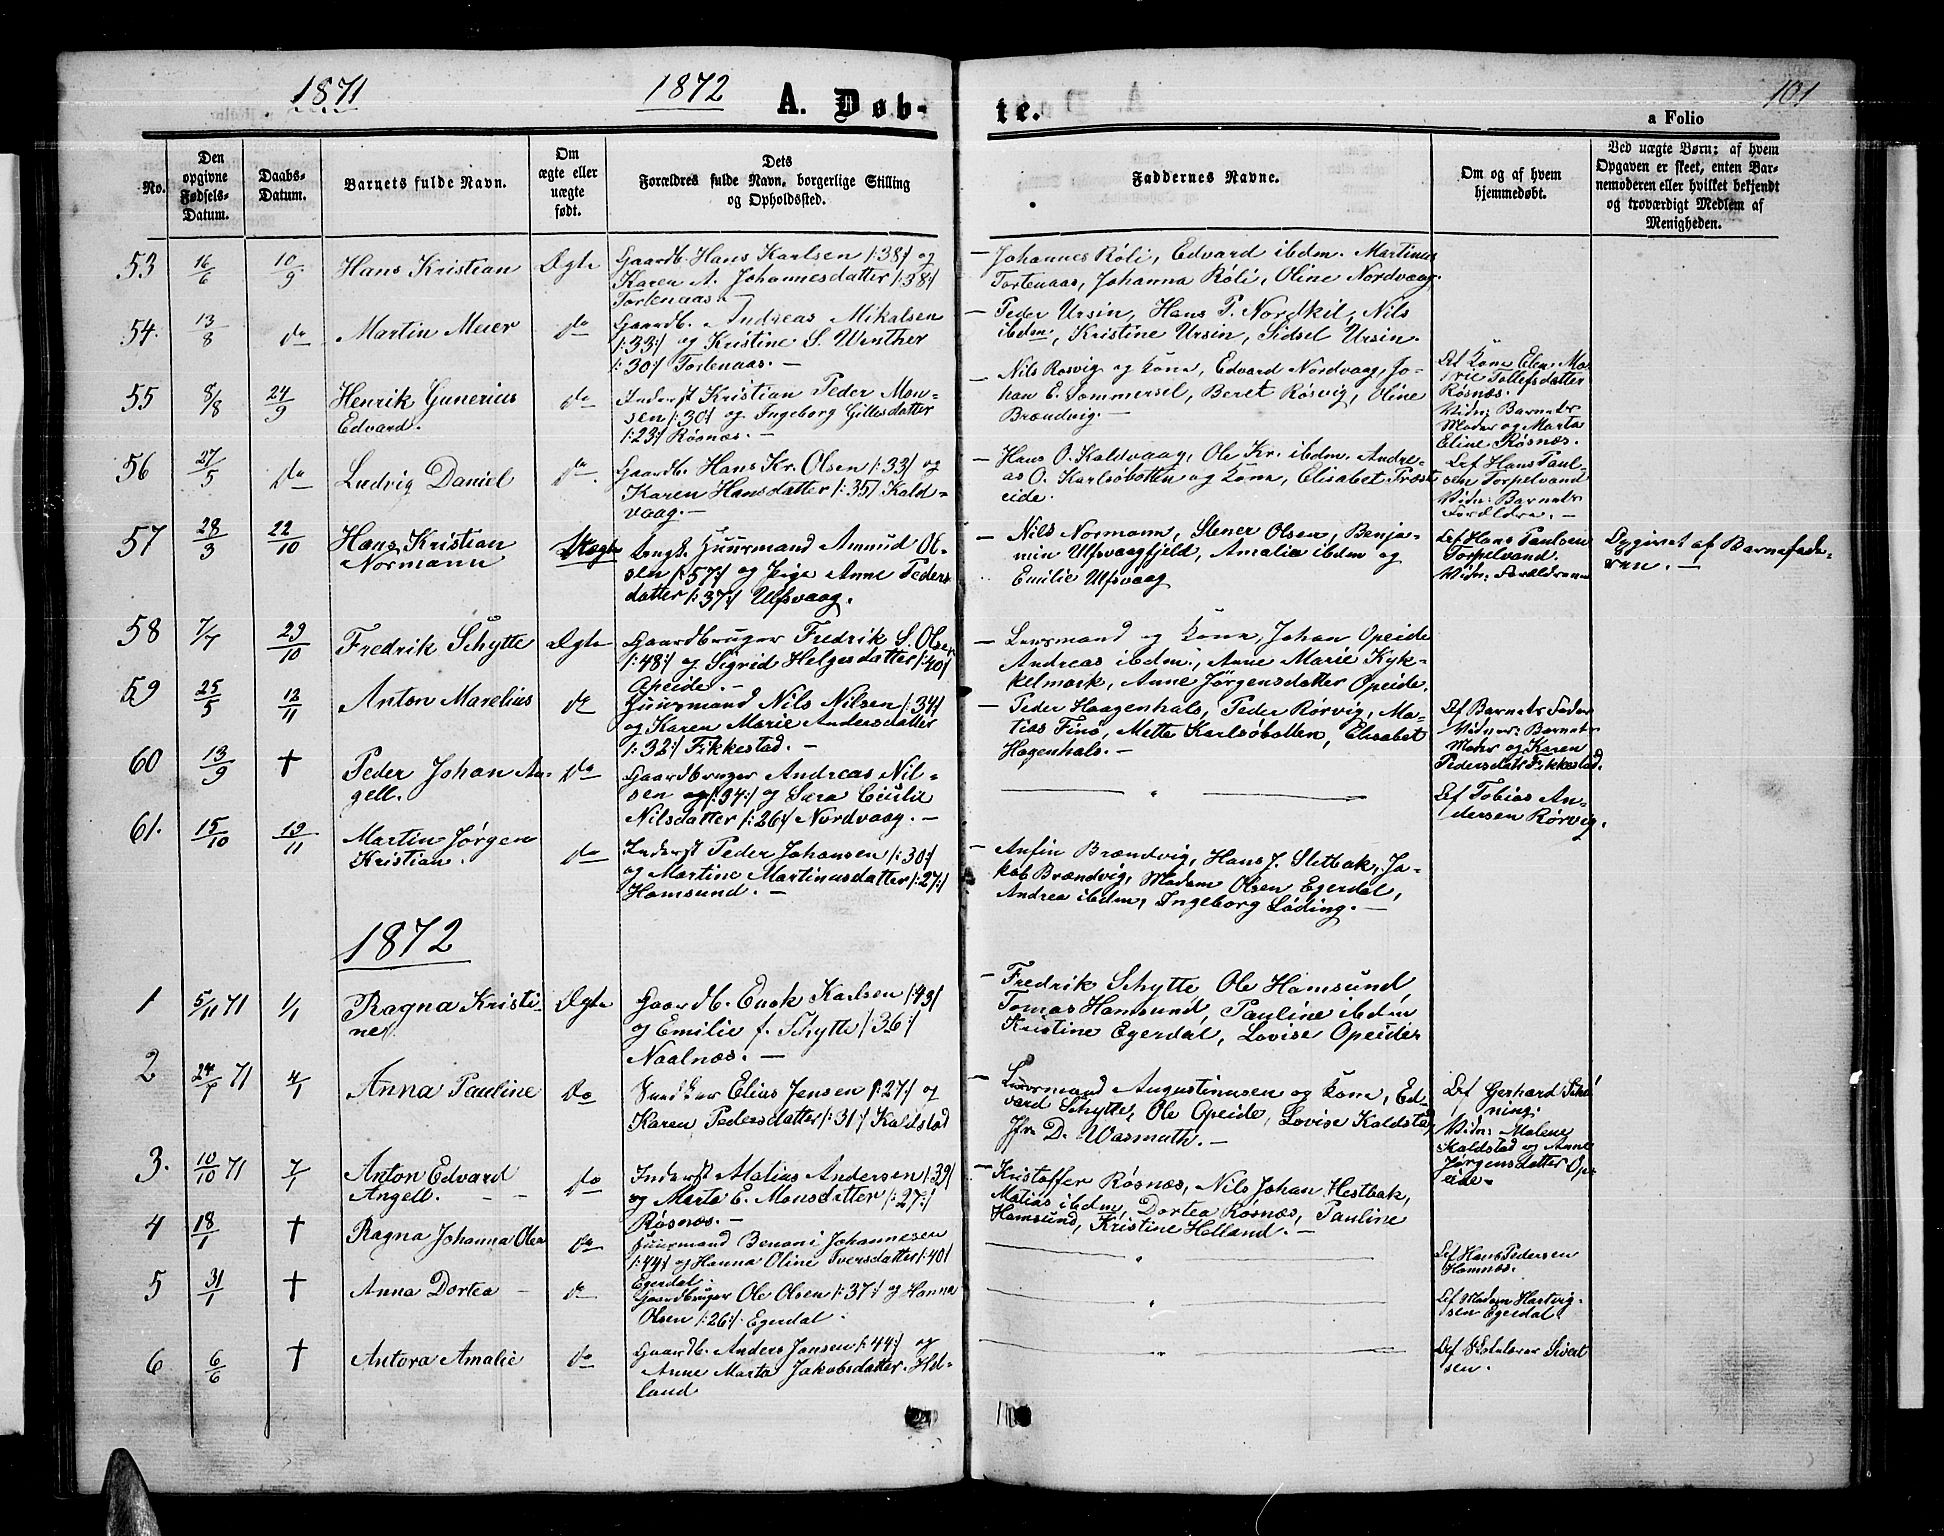 1871
1872
A. Døb-
te.
101
a Folio
No.
Den
opgivne
Fødsels-
Datum.
Daabs-
Datum.
Barnets fulde Navn.
Om
ægte eller
uægte
født.
Dets
Forældres fulde Navn, borgerlige Stilling
og Opholdssted.
Faddernes Navne.
Om og af hvem
hjemmedøbt.
Ved uægte Børn: af hvem
Opgaven er skeet, enten Bar-
nemoderen eller hvilket bekjendt
og troværdigt Medlem af
Menigheden.
53
16/6
10/9
Hans Kristian
Ægte
Gaardb. Hans Karlsen /:38:/ og
Karen A. Johannesdatter /:38:/
Tortenaas. —
— Johannes Røli, Edvard ibdm. Martinus
Tortenaas, Johanna Røli, Oline Nordvaag.
54.
13/8
do
Martin Meier
do
Gaardb. Andreas Mikalsen
/:33:/ og Kristine S. Winther
/:30:/ Tortenaas. —
— Peder Ursin, Hans P. Nordkil, Nils
ibdm, Kristine Ursin, Sidsel Ursin.
55
8/8
24/9
Henrik Gunerius
Edvard.
do
Inderst Kristian Peder Mon-
sen /:30:/ og Ingeborg Gillesdatter
/:23:/ Røsnæs. —
— Nils Rosvig og Kone, Edvard Nordvaag, Jo-
han E. Sommersel, Beret Røsvig, Oline
Brændvig. —
Def Kone Elen Ma-
rie Tollefsdatter
Røsnæs.
Vidn: Barnets
Moder og Marta
Eline Røsnæs.
56
27/5
do
Ludvig Daniel
do.
Gaardb. Hans Kr. Olsen /:33/ og
Karen Hansdatter /:35/ Kald-
vaag. —
— Hans O. Kaldvaag, Ole Kr. ibdm. Andre-
as O. Karlsøbotten og Kone, Elisabet Præst
eide.
Def Hans Paul-
sen Torpelvand
Vidn: Barnets
Forældre. —
57
28/3
22/10
Hans Kristian
Normann
Uægte
Huusmand Amund Ol-
sen /:57:/ og Pige Anne Peders
datter /:37:/ Ulfsvaag.
— Nils Normann, Stener Olsen, Benja-
min Ulfsvaagfjeld, Amalia ibdm og
Emilie Ulfsvaag
Def Hans Paulsen
Torpelvand.
Vidn: Forældrene
Opgivet af Barnefade-
ren. —
58
7/7
29/10
Fredrik Schytte
Ægte
Gaardbruger Fredrik S. Olsen
/:48:/ og Sigrid Helgesdatter /:40/
Opeide. —
— Lensmand og Kone, Johan Opeide
Andreas ibdm., Anne Marie Kyk-
kelmark, Anne Jørgensdatter Opeide.
59
25/5
12/11
Anton Marelius
do
Huusmand Nils Nilsen /:34/
og Karen Marie Andersdatter
/:32:/ Fikkestad. —
— Peder Haagenhals, Peder Rørvig, Ma-
tias Finø, Mette Karlsøbotten, Elisabet
Hagenhals. —
Def Barnets Fader
Vidner: Barnets
Mohr og Karen
Pedersdatt Fikkestad.
60
13/9
†
Peder Johan An-
gell.
do
Gaardbruger Andreas Nil-
sen /:34:/ og Sara Cecilie
Nilsdatter /:26:/ Nordvaag. —
— " —
Def Tobias An-
dersen Rørvig.
61.
15/10
19/11
Martin Jørgen
Kristian.
do
Inderst Peder Johansen /:30:/
og Martine Martinusdatter /:27:/
Hamsund. —
— Anfin Brændvig, Hans J. Sletbak, Ja-
kob Brændvig, Madam Olsen Egerdal,
Andrea ibdm, Ingeborg Løding. —
1872
1
5/11 71
1/1
Ragna Kristi-
ne
Ægte
Gaardb. Enok Karlsen /:43/
og Emilie f. Schytte /:36:/
Naalnæs. —
— Fredrik Schytte Ole Hamsund
Tomas Hamsund, Pauline ibdm
Kristine Egerdal, Lovise Opeide
2
71
4/1
Anna Pauline
do
Elias Jensen /:27:/ og
Karen Pedersdatter /:31:/ Kaldstad
— Lensmand Augustinusen og Kone, Ed-
vard Schytte, Ole Opeide, Lovise Kaldstad,
Jfr. D. Wasmuth. —
Def Gerhard Schø-
ning.
Vidn: Malene
Kaldstad og Anne
Jørgensdatter Op-
eide.
3.
10/10 71
7/1
Anton Edvard
Angell.
do
Inderst Matias Andersen /:39/
og Marta E. Monsdatter /:27:/
Røsnæs. —
— Kristoffer Røsnæs, Nils Johan Hestbak,
Matias ibdm, Dortea Røsnæs, Pauline
Hamsund, Kristine Helland. —
4
18/1
†
Ragna Johanna Olea
do
Huusmand Benoni Johannesen
/:44:/ og Hanna Oline Iversdatter /:40/
Egerdal.
"
Def Hans Pedersen
Hamnæs.
5
31/1
†
Anna Dortea
do
Gaardbruger Ole Olsen /:37:/ og Hanna
Olsen /:26:/ Egerdal.
"
Def Madam Hartvig-
sen Egerdal.
6
6/6
†
Antora Amalie
do
Gaardb. Anders Jansen /:44:/ og
Anne Marta Jakobsdatter. Hel-
land
"
Def Skolelærer Sivert
sen.